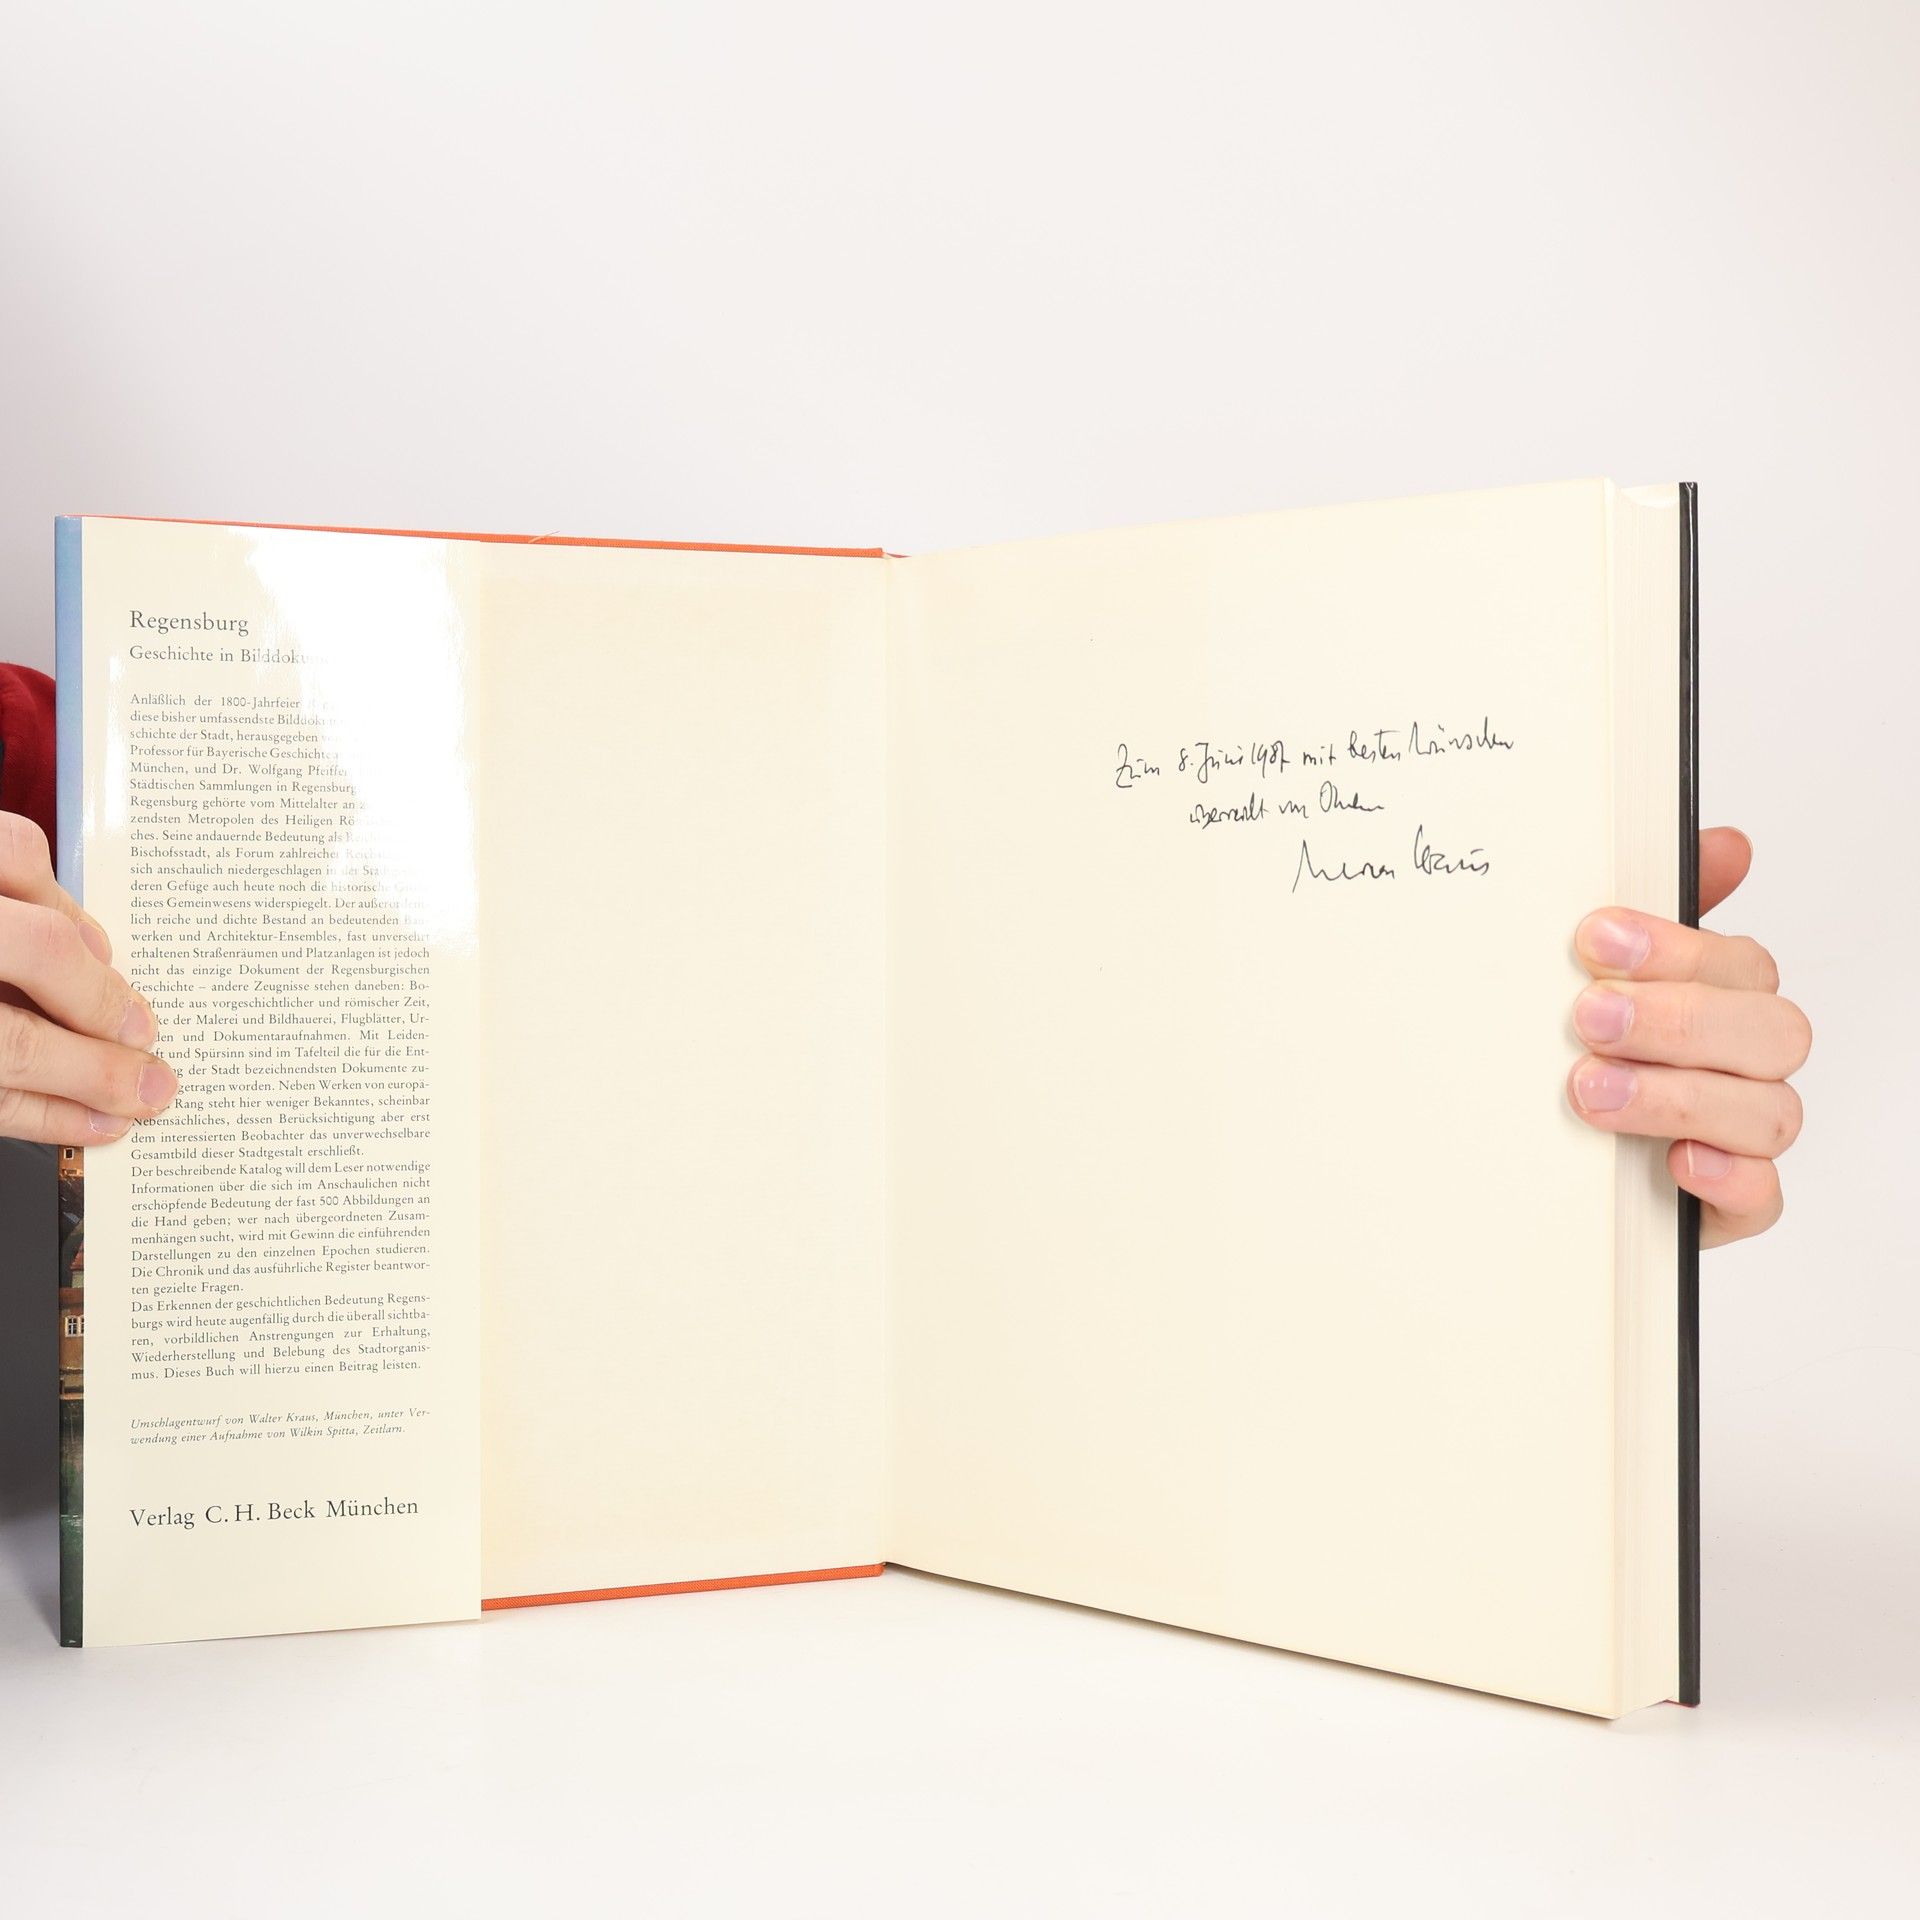 Regensburg
Geschichte in Bilddoku
Anläßlich der 1800-Jahrfeier
diese bisher umfassendste Bilddok
schichte der Stadt, herausgegeben
Professor für Bayerische Geschichte
München, und Dr. Wolfgang Pfeiffer
Städtischen Sammlungen in Regensburg
Regensburg gehörte vom Mittelalter an
zendsten Metropolen des Heiligen Rö
ches. Seine andauernde Bedeutung als
Bischofsstadt, als Forum zahlreicher
sich anschaulich niedergeschlagen in der
deren Gefüge auch heute noch die historische
dieses Gemeinwesens widerspiegelt. Der außerordent-
lich reiche und dichte Bestand an bedeutenden Bau-
werken und Architektur-Ensembles, fast unversehrt
erhaltenen Straßenräumen und Platzanlagen ist jedoch
nicht das einzige Dokument der Regensburgischen
Geschichte – andere Zeugnisse stehen daneben: Bo-
funde aus vorgeschichtlicher und römischer Zeit,
ke der Malerei und Bildhauerei, Flugblätter, Ur-
den und Dokumentaraufnahmen. Mit Leiden-
ft und Spürsinn sind im Tafelteil die für die Ent-
g der Stadt bezeichnendsten Dokumente zu-
getragen worden. Neben Werken von europä-
Rang steht hier weniger Bekanntes, scheinbar
Nebensächliches, dessen Berücksichtigung aber erst
dem interessierten Beobachter das unverwechselbare
Gesamtbild dieser Stadtgestalt erschließt.
Der beschreibende Katalog will dem Leser notwendige
Informationen über die sich im Anschaulichen nicht
erschöpfende Bedeutung der fast 500 Abbildungen an
die Hand geben; wer nach übergeordneten Zusam-
menhängen sucht, wird mit Gewinn die einführenden
Darstellungen zu den einzelnen Epochen studieren.
Die Chronik und das ausführliche Register beantwor-
ten gezielte Fragen.
Das Erkennen der geschichtlichen Bedeutung Regens-
burgs wird heute augenfällig durch die überall sichtba-
ren, vorbildlichen Anstrengungen zur Erhaltung,
Wiederherstellung und Belebung des Stadtorganis-
mus. Dieses Buch will hierzu einen Beitrag leisten.
Umschlagentwurf von Walter Kraus, München, unter Ver-
wendung einer Aufnahme von Wilkin Spitta, Zeitlarn.
Verlag C. H. Beck München
Zum 8. Juni 1987 mit besten Wünschen
überreicht von